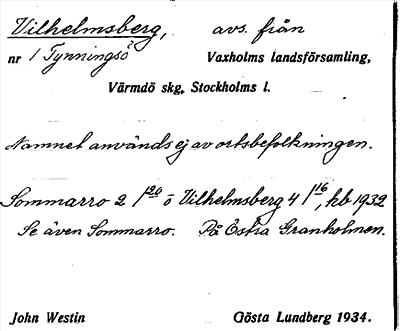 Vilhelmsberg, avs. från
nr 1 Tynningsö Vaxholms landsförsamling,
Värmdö skg, Stockholms l.
Namnet används ej av ortsbefolkningen.
Sommarro 2 1/20 ö Vilhelmsberg 4 1/16, hb 1932
Se även Sommarro. På Östra Granholmen.
John Westin Gösta Lundberg 1934.